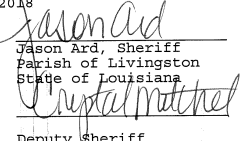 2018
Jason Ard
Jason Ard, Sheriff
Parish of Livingston
State of Louisiana
Crystal Mitchel
Deputy Sheriff